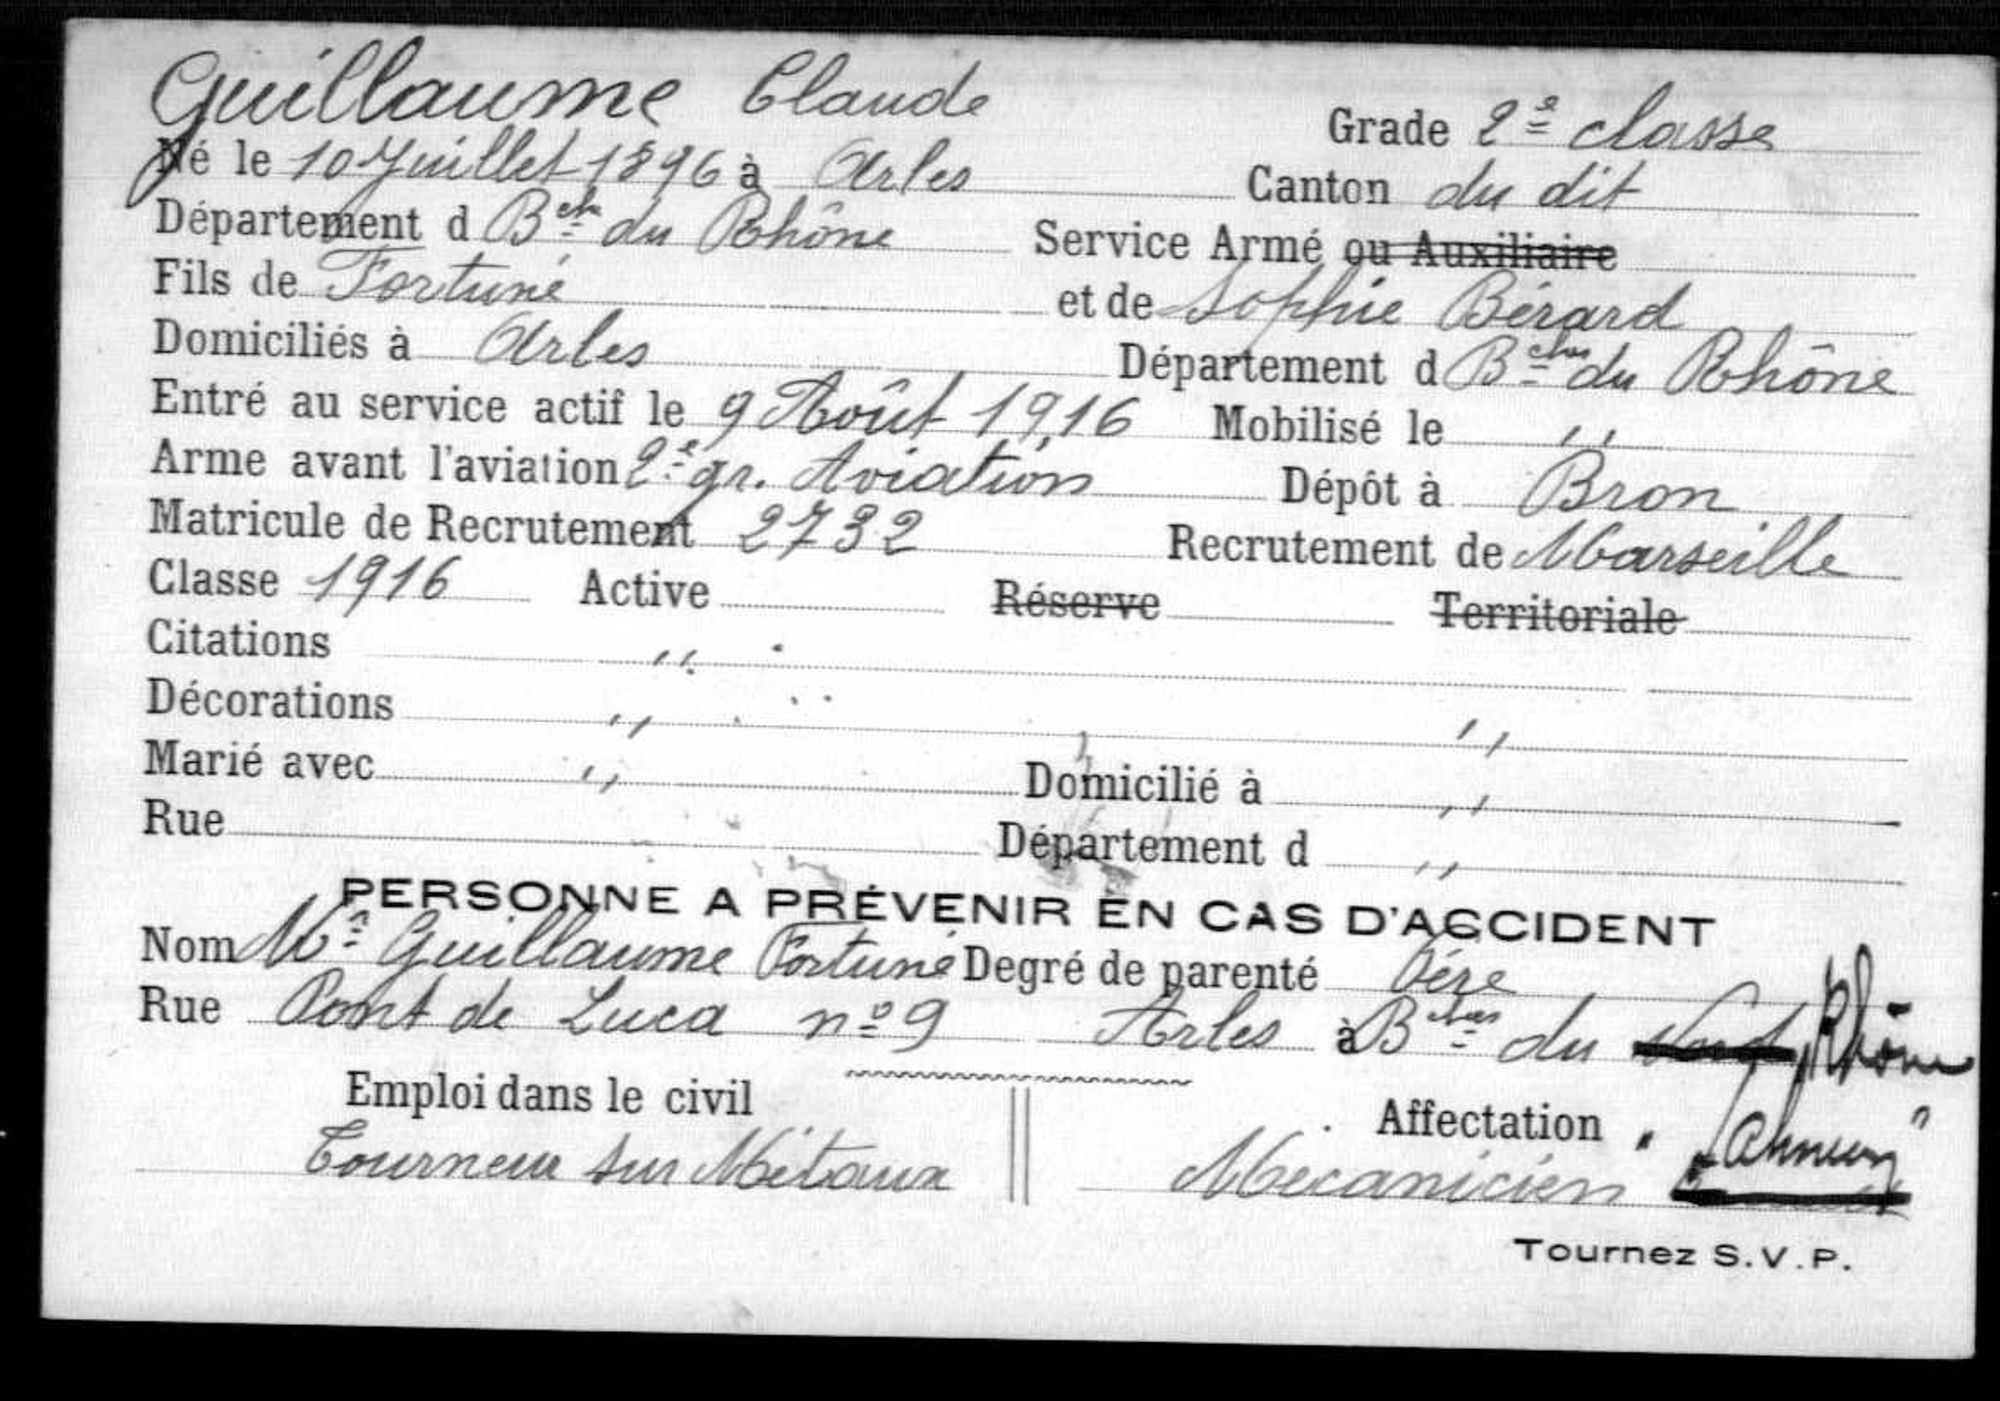 Guillaume Claude Grade 2e classe
Né le 10 Juillet 1896 à Arles Canton du dit
Département d Bches du Rhône Service Armé ou Auxiliaire
Fils de Fortuné et de Sophie Bérard
Domiciliés à Arles Département d Bches du Rhône
Entré au service actif le 9 Août 1916 Mobilisé le ,,
Arme avant l'aviation 2e gr. Aviation Dépôt à Bron
Matricule de Recrutement 2732 Recrutement de Marseille
Classe 1916 Active Réserve Territoriale
Citations ,,
Décorations ,, ,,
Marié avec ,, Domicilié à ,,
Rue Département d ,,
PERSONNE A PRÉVENIR EN CAS D'ACCIDENT
Nom Mr Guillaume Fortuné Degré de parenté Père
Rue Pont de Luca no 9 Arles à Bches du Rhône
Emploi dans le civil Affectation
Tourneur sur Métaux Mecanicien
Tournez S.V.P.